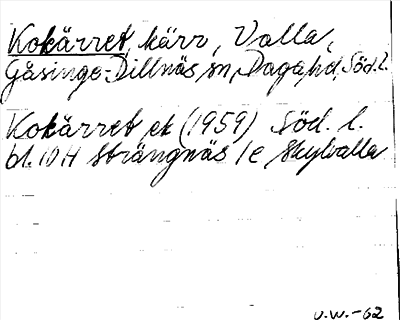 Kokärret, kärr, Valla,
Gåsinge-Dillnäs sn, Daga hd, Söd.l.
Kokärret ek (1959) Söd. l.
bl. 10H Strängnäs 1e Skylvalla
v.w.-62